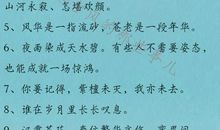 山河永寂、怎堪欢颜。
5、风华是一指流砂，苍老是一段年华。
6、夜雨染成天水碧。有些人不需要姿态，
也能成就一场惊鸿。
7、你要记得，紫檀未灭，我亦未去。
8、谁在岁月里长长叹息。